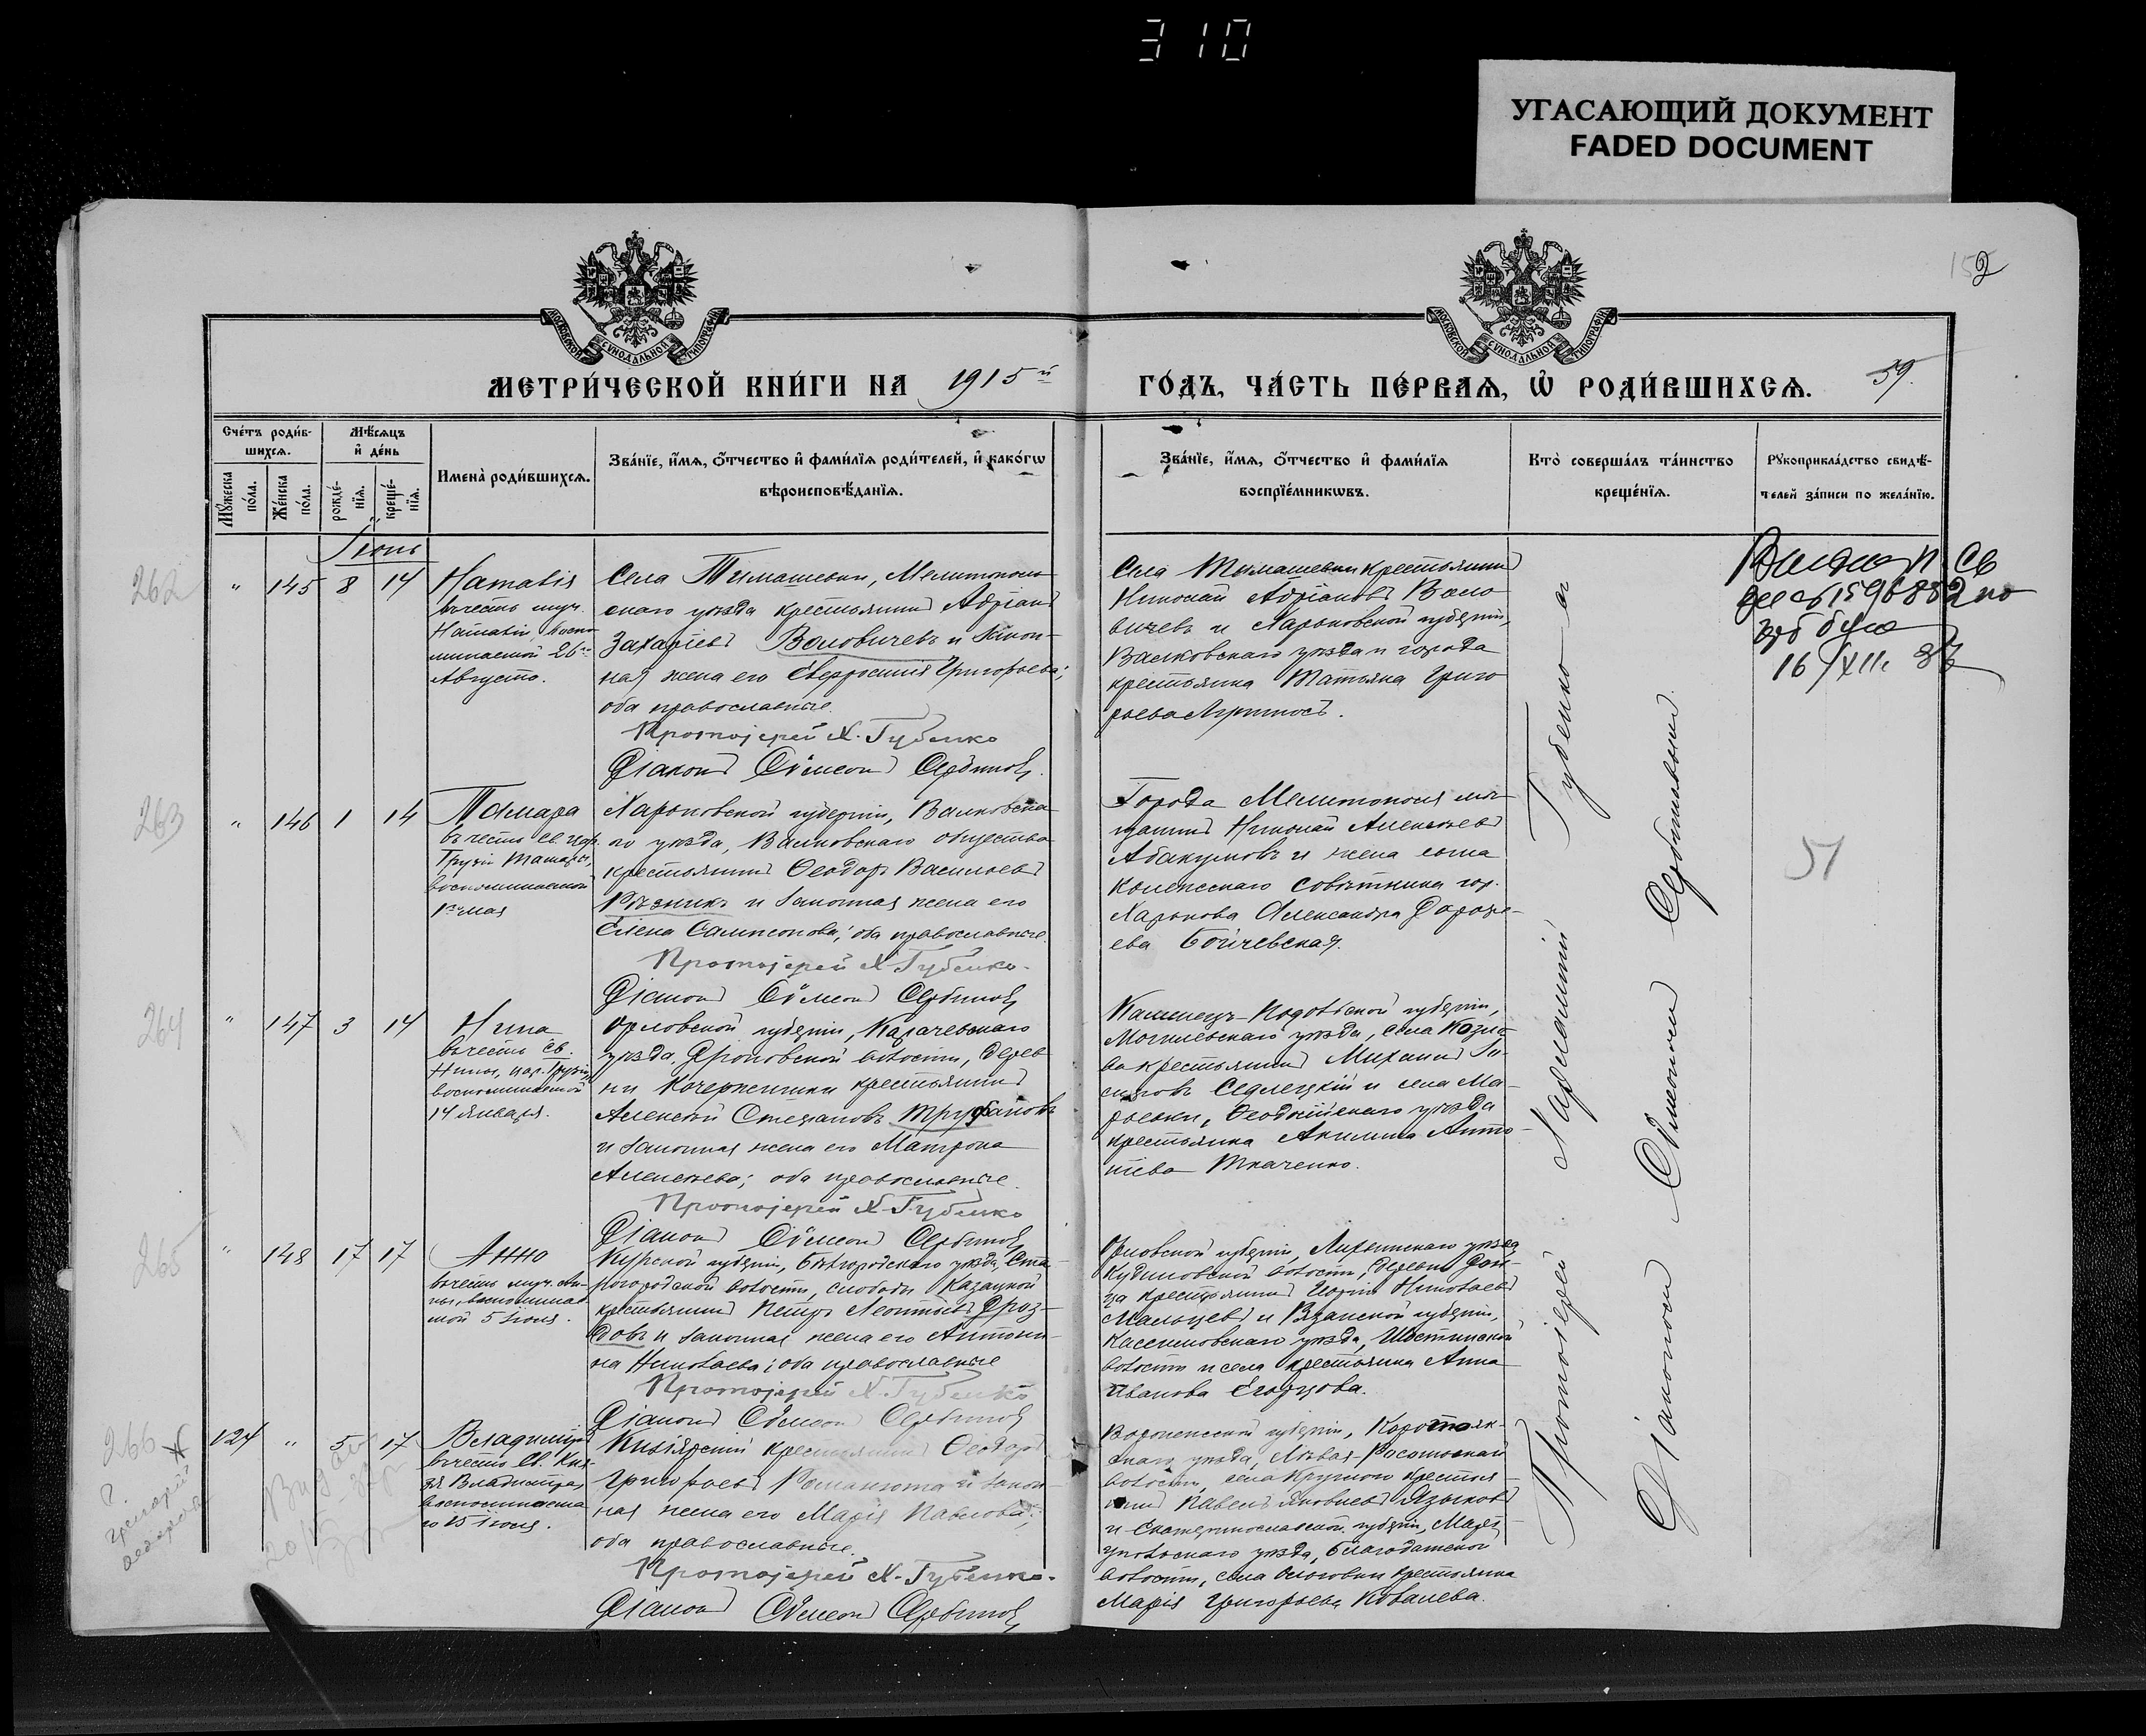 310
УГАСАЮЩИЙ ДОКУМЕНТ
FADED DOCUMENT
152
МОСКОВСКОЙ СѴНОДАЛЬНОЙ ТИПОГРАФІИ
МОСКОВСКОЙ СѴНОДАЛЬНОЙ ТИПОГРАФІИ
МЕТРИ́ЧЕСКОЙ КНИ́ГИ НА 1915й ГО́ДЪ, ЧА́СТЬ ПЕ́РВАѦ, Ѡ҆ РОДИ́ВШИХСѦ. 59.
Сче́тъ роди́в-
шихсѧ.
Мꙋжеска по́ла.
Же́нска по́ла.
Мѣ́сѧцъ
и҆ де́нь
рожде́-
нїѧ.
креще́-
нїѧ.
Имена̀ роди́вшихсѧ.
Зва́нїе, и҆́мѧ, ѻ҆́тчество и҆ фами́лїѧ роди́телей, и҆ како́гѡ
вѣроисповѣ́данїѧ.
Зва́нїе, и҆́мѧ, ѻ҆́тчество и҆ фами́лїѧ
воспрїе́мникѡвъ.
Кто̀ соверша́лъ та́инство
креще́нїѧ.
Рꙋкоприкла́дство свидѣ́-
телей за́писи по жела́нїю.
Іюнь
262
" 145 8 14
Наталія
въ честь муч.
Наталіи, воспо-
минаемой 26го
Августа.
Села Тимашевки, Мелитополь-
скаго уѣзда крестьянинъ Адріанъ
Захаріевъ Воловичевъ и закон-
ная жена его Евфросинія Григорьева;
оба православные.
Протоіерей Х. Губенко
Діаконъ Сѵмеонъ Сербиновъ.
Села Тимашевки крестьянинъ
Николай Адріановъ Воло-
вичевъ и Харьковской губерніи,
Валковскаго уѣзда и города
крестьянка Татьяна Григо
рьева
16/XII
263
" 146 1 14
Тамара
въ честь св. цар.
Грузіи Тамары,
воспоминаемой
1го мая
Харьковской губерніи, Валковска-
го уѣзда, Валковскаго общества
крестьянинъ Ѳеодоръ Васильевъ
Рѣзникъ и законная жена его
Елена Сампсонова; оба православные.
Протоіерей Х. Губенко.
Діаконъ Сѵмеонъ Сербиновъ
Города Мелитополя мѣ-
щанинъ Николай Алексѣевъ
Абакумовъ и жена сына
коллежскаго совѣтника гор.
Харькова Александра Дороѳе-
ева Бойчевская.
51
264
" 147 3 14
Нина
въ честь св.
Нины, цар. Грузіи,
воспоминаемой
14 января.
Орловской губерніи, Карачевскаго
уѣзда, Дроновской волости, дерев-
ни Кочережники крестьянинъ
Алексѣй Степановъ Труфановъ
и законная жена его Матрона
Алексѣева; оба православные.
Протоіерей Х. Губенко
Діаконъ Сѵмеонъ Сербиновъ
Каменецъ-Подольской губерніи,
Могилевскаго уѣзда, села Козло-
ва крестьянинъ Михаилъ
Седлецкій и села Ма-
рьевки, Ѳеодосійскаго уѣзда
крестьянка Акилина Анто-
ніева Ткаченко.
265
" 148 17 17
Анна
въ честь муч. Ан-
ны, воспоминае-
мой 5 іюня.
Курской губерніи, Бѣлгородскаго уѣзда, Ста-
рогородской волости, слободы Казацкой
крестьянинъ Петръ Леонтьевъ Дроз-
довъ и законная жена его Антони-
на Николаева; оба православные
Протоіерей Х. Губенко
Діаконъ Сѵмеонъ Сербиновъ
Орловской губерніи, уѣзда
волости, деревни
крестьянинъ Георгій Николаевъ
Мальцевъ и Рязанской губерніи,
Касимовскаго уѣзда, Шостьинской
волости и села крестьянка Анна
Иванова Егорцова.
266
124 " 5 17
Владиміръ
въ честь св. Кня-
зя Владиміра,
воспоминаема-
го 15 іюля.
Кизіярскій крестьянинъ Ѳеодоръ
Григорьевъ Романюта и закон-
ная жена его Марія Павлова;
оба православные.
Протоіерей Х. Губенко.
Діаконъ Сѵмеонъ Сербиновъ
Воронежской губерніи, Коротояк-
скаго уѣзда,
волости, села Круглаго крестья-
нинъ Павелъ Яковлевъ Языковъ
и Екатеринославской губерніи, Маріу-
польскаго уѣзда, Благодатной
волости, села Ольговки крестьянка
Марія Григорьева Ковалева.
Протоіерей Харлампій Губенко съ
Діакономъ Сѵмеономъ Сербиновымъ.